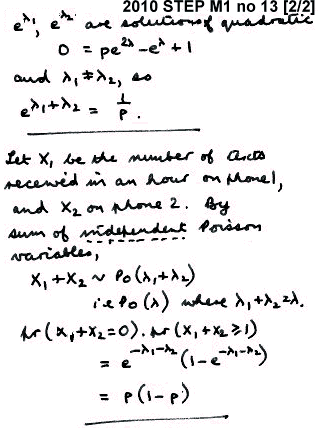 2010 STEP M1 no 13 [2/2]
e^λ₁, e^λ₂ are solutions of quadratic
0 = pe^2λ - e^λ + 1
and λ₁ ≠ λ₂, so
e^λ₁+λ₂ = 1/p.
Let X₁ be the number of texts
received in an hour on phone 1,
and X₂ on phone 2. By
sum of independent Poisson
variables,
X₁ + X₂ ~ Po(λ₁+λ₂)
i.e Po(λ) where λ₁+λ₂=λ.
pr(X₁+X₂=0). pr(X₁+X₂⩾1)
= e^-λ₁-λ₂ (1-e^-λ₁-λ₂)
= p(1-p)